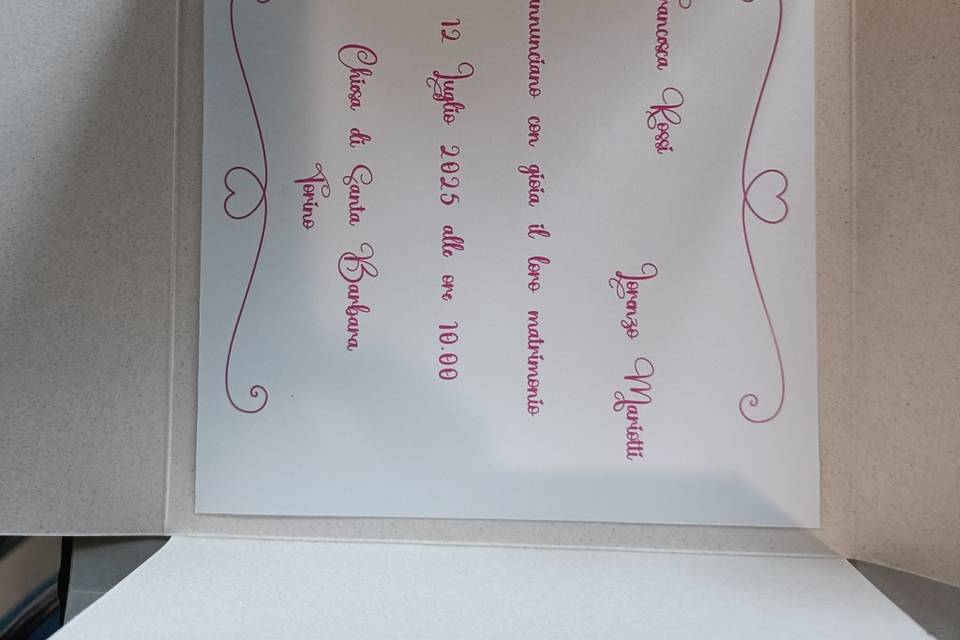 rancesca Rossi
Lorenzo Mariotti
annunciano con gioia il loro matrimonio
12 Luglio 2025 alle ore 10.00
Chiesa di Santa Barbara
Torino